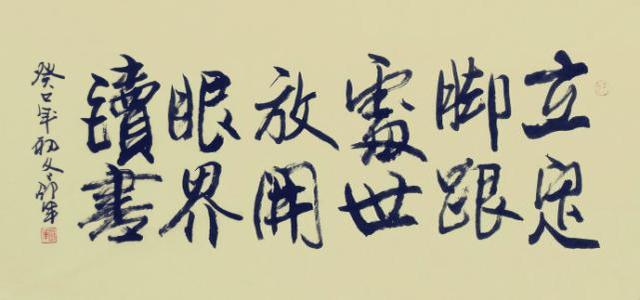 立定
脚跟
處世
放開
眼界
讀書
癸巳年初